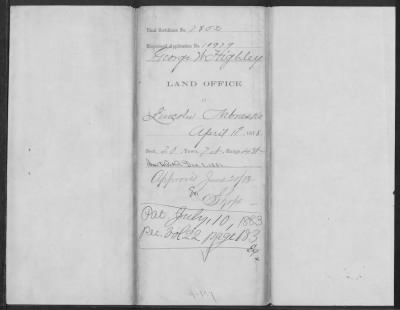 Final Certificate No. 2802
Homestead Application No. 10937
George W. Highley
LAND OFFICE
at
Lincoln Nebraska
April 10 188
Sect. 20 Town 7 N Range
Approved June 20/83
Pat July, 10, 1883
Rec. Vol 22 page 183